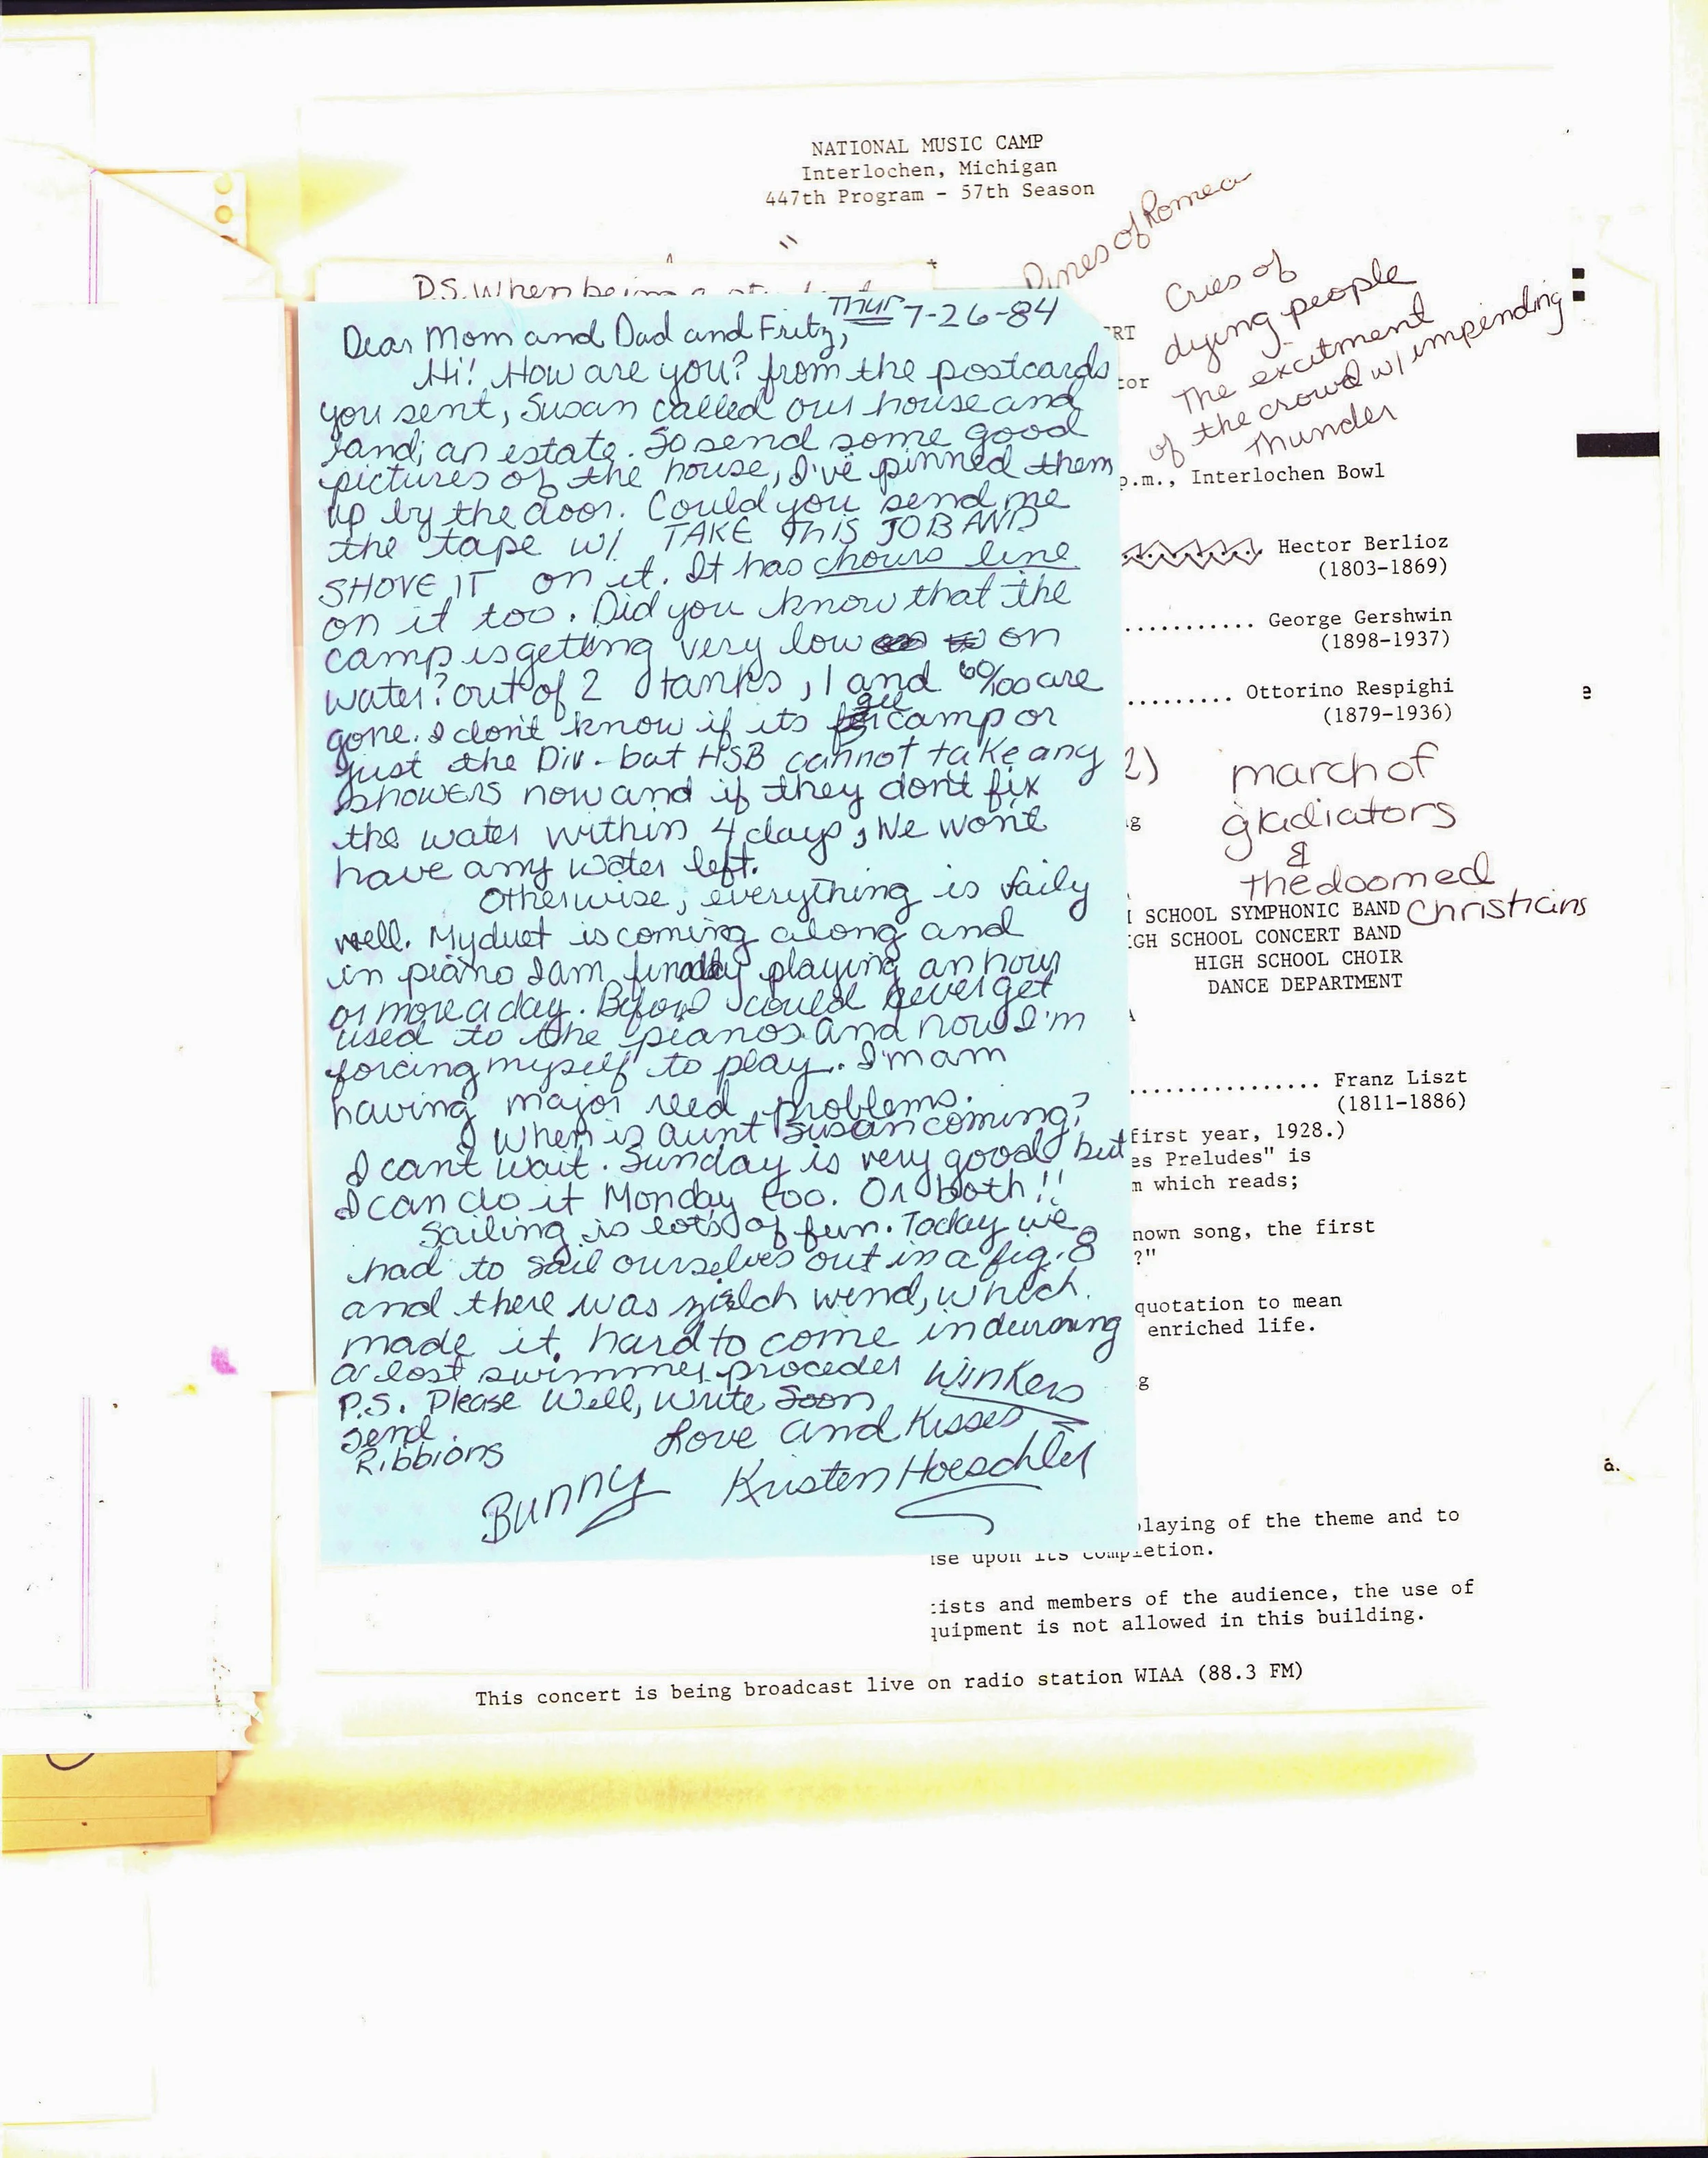 NATIONAL MUSIC CAMP
Interlochen, Michigan
447th Program - 57th Season
Pines of Romea
Cries of
dying people
The excitment
of the crowd w/ impending
Thunder
P.S. When being a
Thur 7-26-84
Dear Mom and Dad and Fritz,
Hi! How are you? from the postcards
you sent, Susan called our house and
land; an estate. So send some good
pictures of the house, I've pinned them
up by the door. Could you send me
the tape w/ TAKE THIS JOB AND
SHOVE IT on it. It has chours line
on it too. Did you know that the
camp is getting very low on
water? out of 2 tanks, 1 and 60/100 are
gone. I don't know if its all camp or
just the Div. but HSB cannot take any
showers now and if they don't fix
the water within 4 days, We won't
have any water left.
Otherwise, everything is faily
well. My duet is coming along and
in piano I am finally playing an hour
or more a day. Before I could never get
used to the pianos and now I'm
forcing myself to play. I'm am
having major reed problems.
When is Aunt Susan coming?
I can't wait. Sunday is very good but
I can do it Monday too. Or both!!
Sailing is lots of fun. Today we
had to sail ourselves out in a fig. 8
and there was zilch wind, which
made it hard to come in durning
a lost swimmer proceder
Well, Write Soon, Winkers
Love and Kisses
Kristen Hoeschler
Bunny
P.S. Please
send
Ribbions
RT
tor
p.m., Interlochen Bowl
Hector Berlioz
(1803-1869)
............ George Gershwin
(1898-1937)
......... Ottorino Respighi
(1879-1936)
e
2) march of
gladiators
&
the doomed
Christians
g
SCHOOL SYMPHONIC BAND
GH SCHOOL CONCERT BAND
HIGH SCHOOL CHOIR
DANCE DEPARTMENT
A
................ Franz Liszt
(1811-1886)
first year, 1928.)
es Preludes" is
m which reads;
nown song, the first
?"
quotation to mean
enriched life.
g
a.
laying of the theme and to
se upon its completion.
ists and members of the audience, the use of
quipment is not allowed in this building.
This concert is being broadcast live on radio station WIAA (88.3 FM)